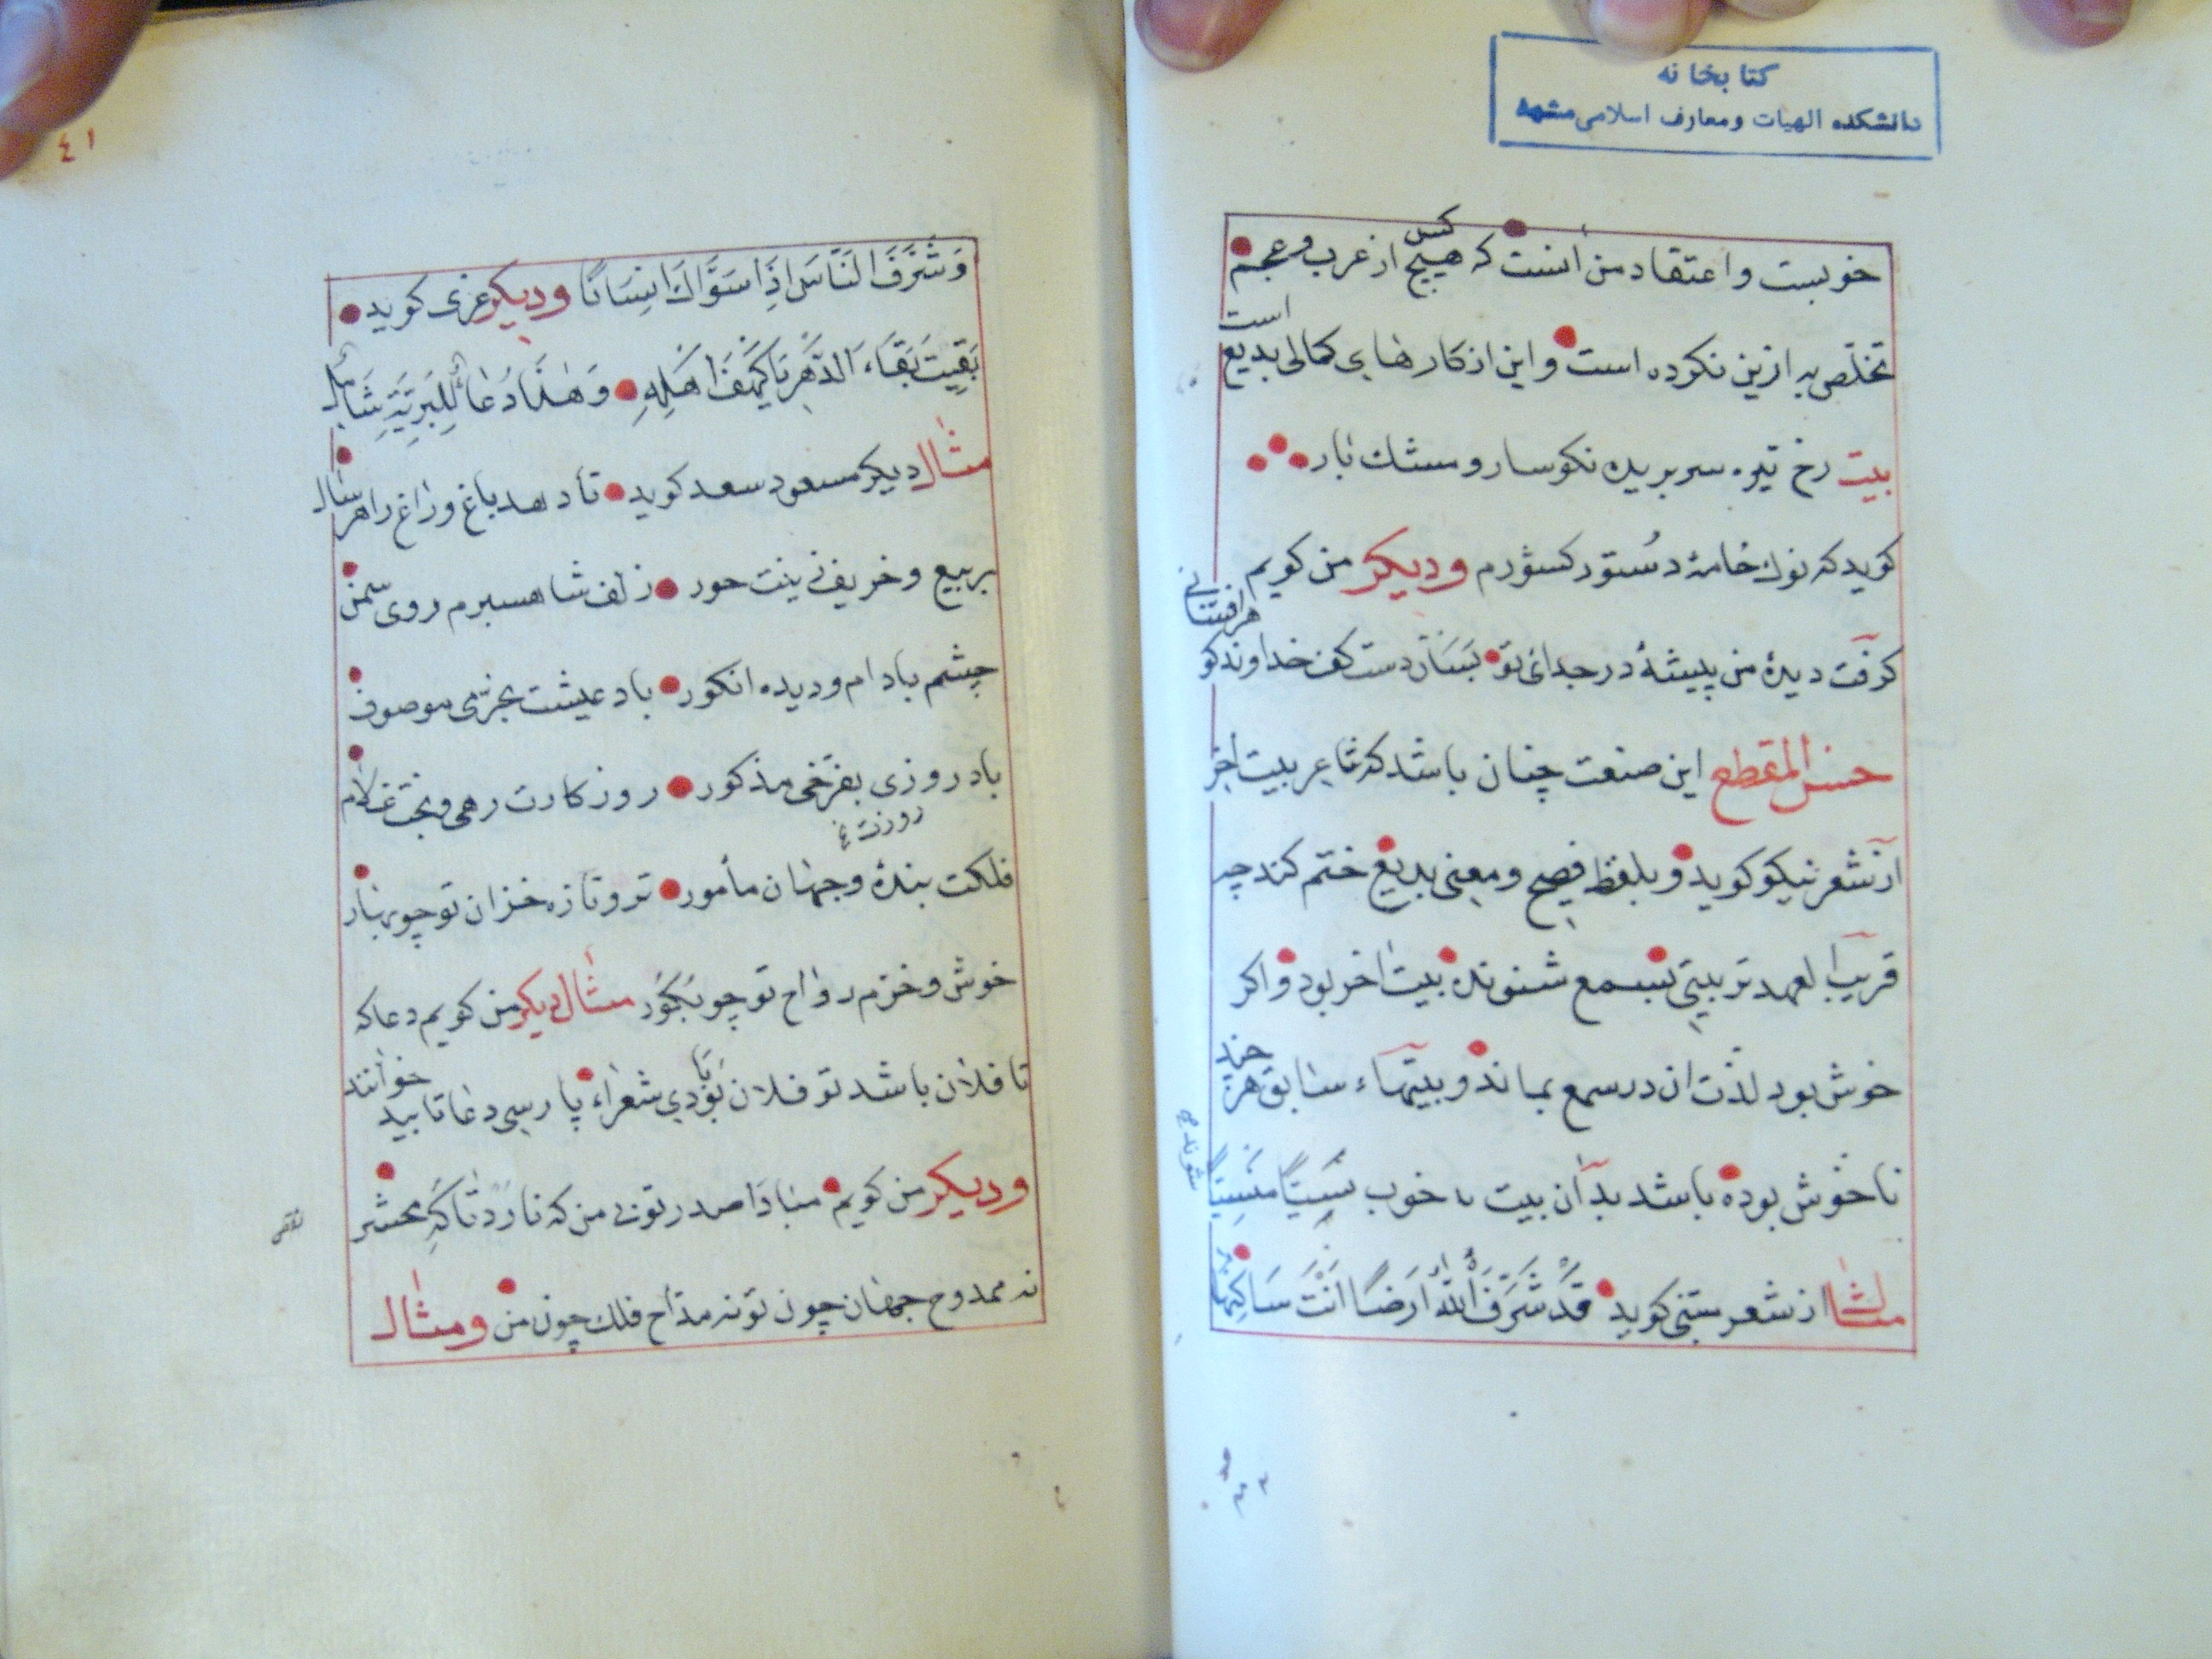 کتابخانه
دانشکده الهیات و معارف اسلامی مشهد
خوبست واعتقاد من انست که هیچ کس از عرب و عجم
تخلّص به ازین نکرده است واین از کارهای کمالی بدیع است
بیت رخ تیره سر بریده نکوسار و مشک بار
کوید که نوک خامهٔ دستور کشورم ودیکر من کویم
کرفت دیدهٔ من پیشهٔ در جدائی تو بسان دست کف خداوند کوهر افشانی
حسن المقطع این صنعت چنان باشد که شاعر بیت اخر
از شعر نیکو کوید و بلفظ فصیح و معنی بدیع ختم کند چه
قریب العهدتر بیتی بسمع شنونده بیت اخر بود و اکر
خوش بود لذّت ان در سمع بماند و بیتهاء سابق هر چند
ناخوش بوده باشد بدان بیت خوب نسیًا منسیًا
شوند
مثالش از شعر متنبّی کوید قَدْ شَرَّفَ اللهُ أَرضًا أَنْتَ سَاكِنُهَا
٤١
وَشَرَّفَ النَّاسَ إِذْ سَوَّاكَ إِنسَانًا ودیکر غزی کوید
بَقِيتَ بَقَاءَ الدَّهْرِ يَا كَهْفَ أَهْلِهِ وَهٰذَا دُعَاءٌ لِلْبَرِيَّةِ شَامِلُ
مثال دیکر مسعود سعد کوید تا دهد باغ و راغ را هر سال
بربیع و خریف زینت حور زلف شاهسبرم روی سمن
چشم بادام و دیده انکور باد عیشت بخرّمی موصوف
باد روزی بفرّخی مذکور روز کارت رهی و بخت غلام
روزت خ
فلکت بندهٔ و جهان مأمور تر و تازه خزان تو چو بهار
خوش و خرّم رواح تو چو بکور مثال دیکر من کویم دعا که
تا فلان باشد تو فلان بودی شعراء پارسی دعا تابید خوانند
ودیکر من کویم مبادا صدر تو بی من که نارد تا که محشر
نه ممدوح جهان چون تو نه مدّاح فلک چون من و مثال